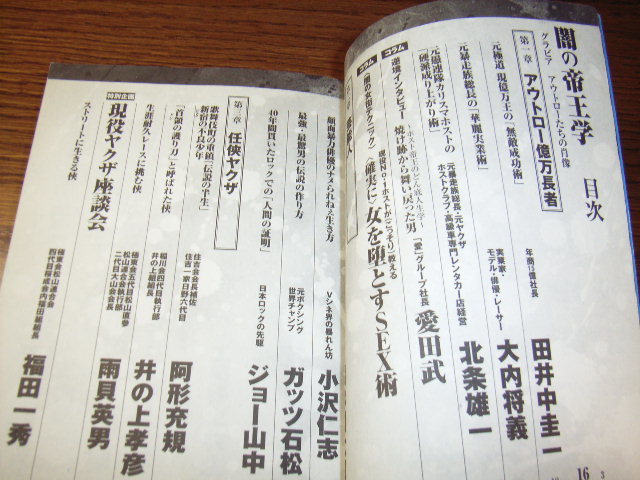 闇の帝王学
目次
グラビア アウトローたちの肖像
第一章 アウトロー億万長者
年商12億社長
田井中圭一
元極道 現億万王の「無敵成功術」
実業家・モデル・俳優・レーサー
大内将義
元暴走族総長の「華麗実業術」
元暴走族総長・元ヤクザ
ホストクラブ・高級車専門レンタカー店経営
北条雄一
元愚連隊カリスマホストの
「硬派成り上がり術」
「愛」グループ社長
愛田武
コラム
逆境インタビュー 焼け跡から舞い戻った男
コラム
現役No.1ホストがこっそり教える
確実に女を堕とすSEX術
顔面暴力俳優のナメられねぇ生き方
Vシネ界の暴れん坊
小沢仁志
最強・最驚男の伝説の作り方
元ボクシング
世界チャンプ
ガッツ石松
40年間貫いたロックでの「人間の証明」
日本ロックの先駆
ジョー山中
第三章 任侠ヤクザ
歌舞伎町の重鎮「伝説の半生」
新宿の不良少年
住吉会会長補佐
住吉一家日野六代目
阿形充規
「首領の護り刀」と呼ばれた侠
稲川会四代目執行部
井の上組組長
井の上孝彦
生涯耐久レースに挑む侠
極東会五代目松山直参
松山連合会執行部
二代目大山会会長
雨貝英男
特別企画
現役ヤクザ座談会
ストリートに生きる侠
極東会松山連合会
四代目桜成会内福田組組長
福田一秀
16
3